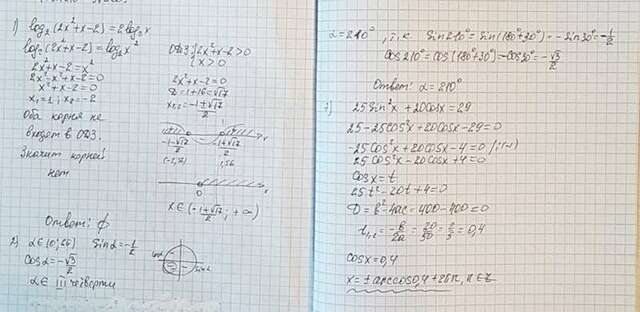 1) log₂(2x²+x-2)=2log₂x
log₂(2x+x-2)=log₂x²
2x²+x-2=x²
2x²-x²+x-2=0
x²+x-2=0
x₁=1; x₂=-2
Оба корня не
входят в ОДЗ.
Значит корней
нет
ОДЗ: {2x²+x-2>0
x>0
2x²+x-2=0
D=1+16=√17
x₁,₂=-1±√17
2
-1-√17
2
-1+√17
2
1,56
0
x
x∈(-1+√17/2; +∞)
Ответ: ∅
2) sinα=-1/2
cosα=-√3/2
α∈ III четверти
α=210°, т.к. sin210°=sin(180°+30°)=-sin30°=-1/2
cos210°=cos(180°+30°)-cos30°=-√3/2
Ответ: α=210°
25sin²x+20cosx=29
25-25cos²x+20cosx-29=0
-25cos²x+20cosx-4=0 /:(-1)
25cos²x-20cosx+4=0
cosx=t
25t²-20t+4=0
D=b²-4ac=400-400=0
t₁,₂=-b/2a=20/50=2/5=0,4
cosx=0,4
x=±arccos0,4+2πn, n∈Z